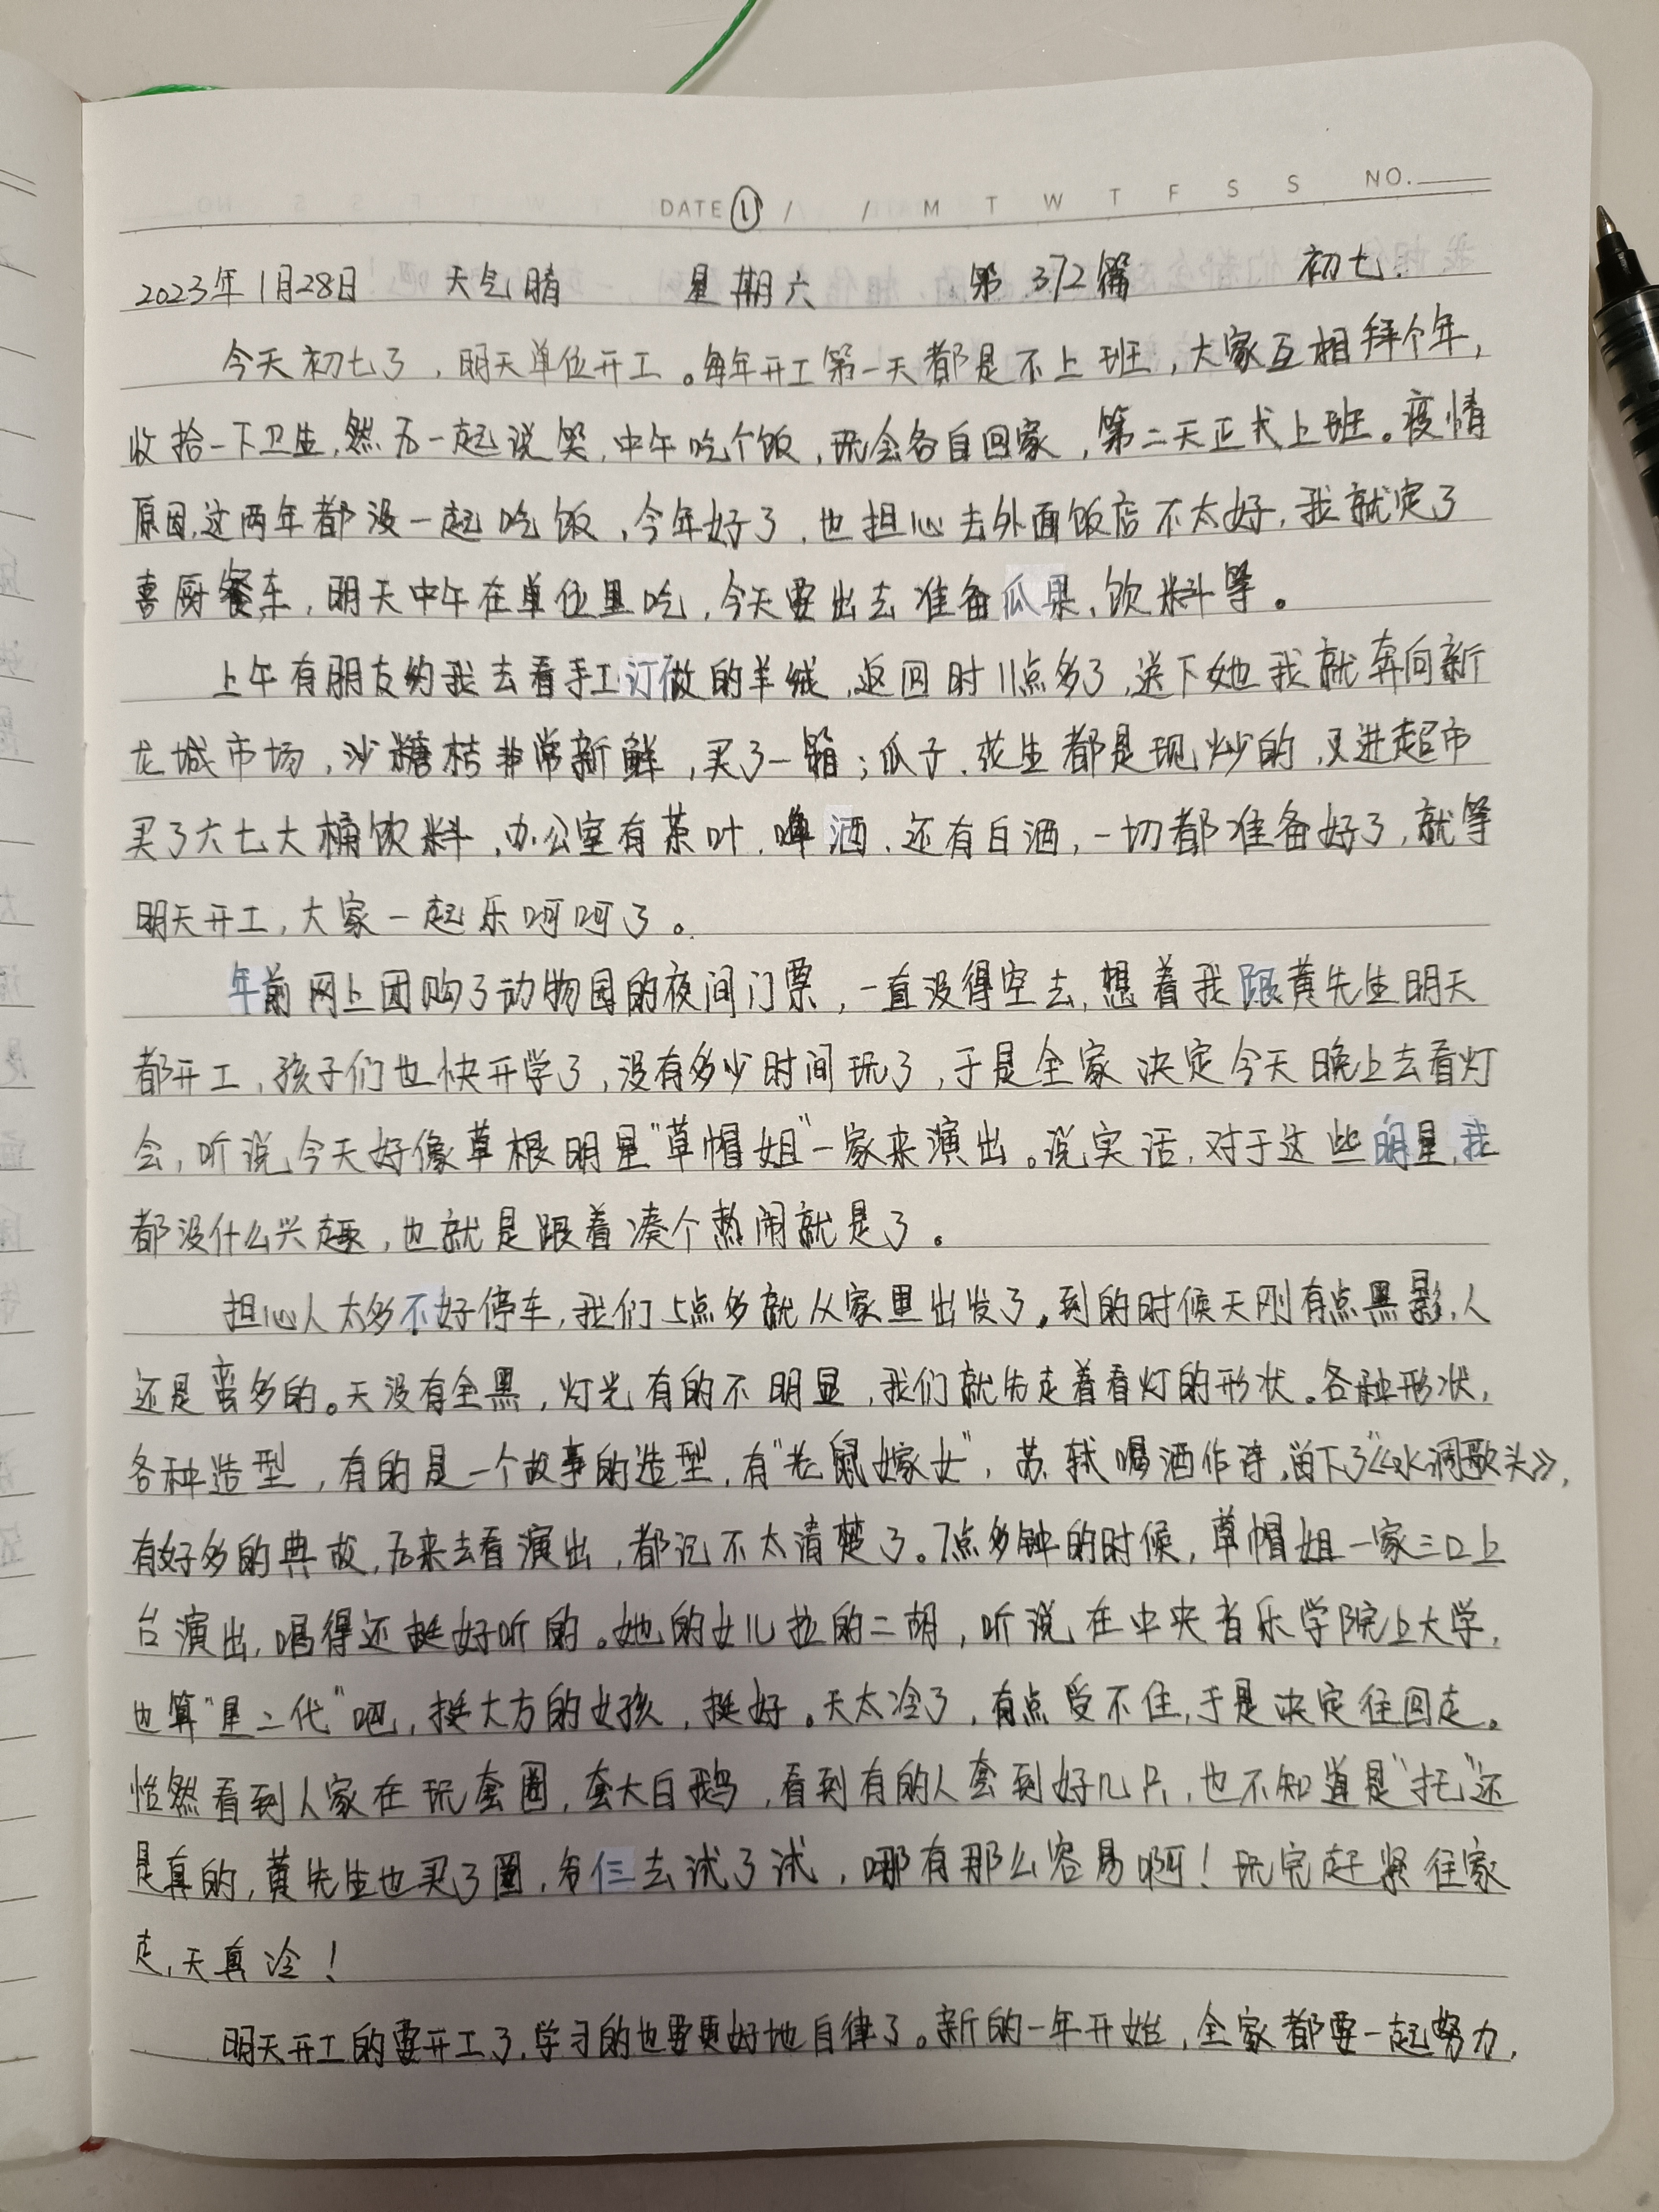 DATE ① / / M T W T F S S NO.
2023年1月28日 天气晴 星期六 第372篇 初七.
今天初七了，明天单位开工。每年开工第一天都是不上班，大家互相拜个年，
收拾一下卫生，然后一起说笑，中午吃个饭，玩会各自回家，第二天正式上班。疫情
原因，这两年都没一起吃饭，今年好了，也担心去外面饭店不太好，我就定了
喜厨餐车，明天中午在单位里吃，今天要出去准备瓜果、饮料等。
上午有朋友约我去看手工订做的羊绒，返回时11点多了，送下她我就奔向新
龙城市场，沙糖桔非常新鲜，买了一箱；瓜子、花生都是现炒的，又进超市
买了六七大桶饮料，办公室有茶叶、啤酒、还有白酒，一切都准备好了，就等
明天开工，大家一起乐呵呵了。
年前网上团购了动物园的夜间门票，一直没得空去，想着我跟黄先生明天
都开工，孩子们也快开学了，没有多少时间玩了，于是全家决定今天晚上去看灯
会，听说今天好像草根明星“草帽姐”一家来演出。说实话，对于这些明星，我
都没什么兴趣，也就是跟着凑个热闹就是了。
担心人太多不好停车，我们5点多就从家里出发了。到的时候天刚有点黑影，人
还是蛮多的。天没有全黑，灯光有的不明显，我们就先走着看灯的形状。各种形状，
各种造型，有的是一个故事的造型，有“老鼠嫁女”，苏轼喝酒作诗，留下了《水调歌头》，
有好多的典故，后来去看演出，都记不太清楚了。7点多钟的时候，草帽姐一家三口上
台演出，唱得还挺好听的。她的女儿拉的二胡，听说在中央音乐学院上大学，
也算“星二代”吧，挺大方的女孩，挺好。天太冷了，有点受不住，于是决定往回走。
恰然看到人家在玩套圈，套大白鹅，看到有的人套到好几只，也不知道是“托”还
是真的，黄先生也买了圈，爷仨去试了试，哪有那么容易啊！玩完赶紧往家
走，天真冷！
明天开工的要开工了，学习的也要更好地自律了。新的一年开始，全家都要一起努力，